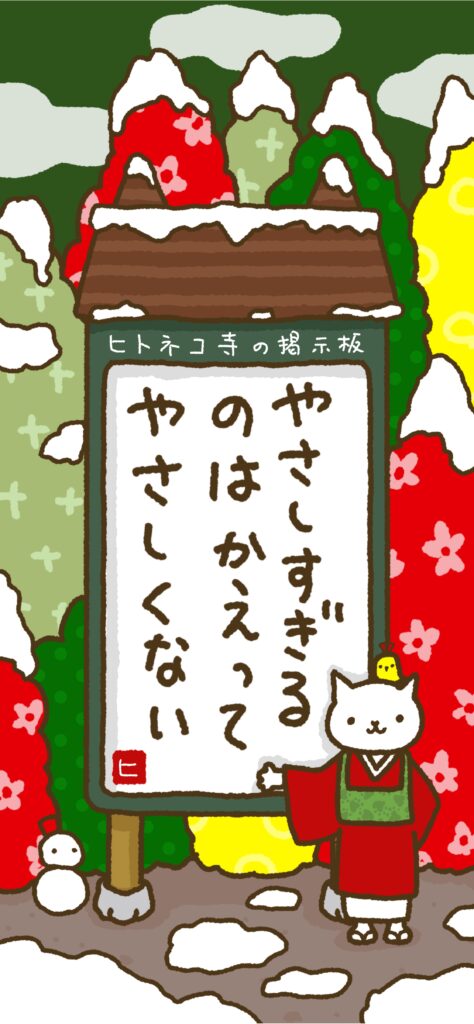 ヒトネコ寺の掲示板
やさしすぎる
のは かえって
やさしくない
ヒ